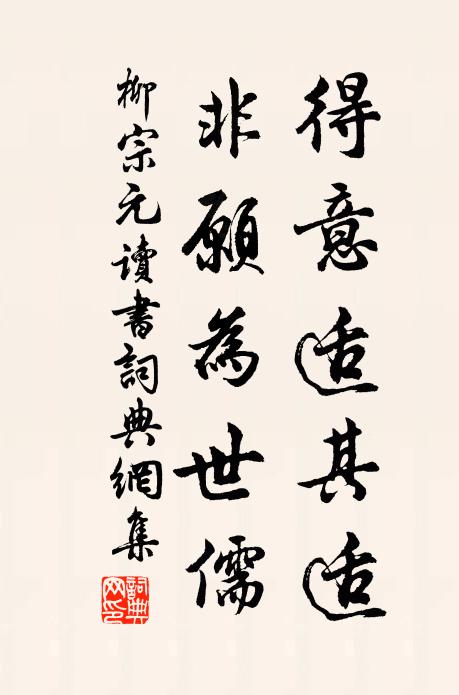 得意适其适
非願為世儒
柳宗元讀書詞典網集
詞典
网印